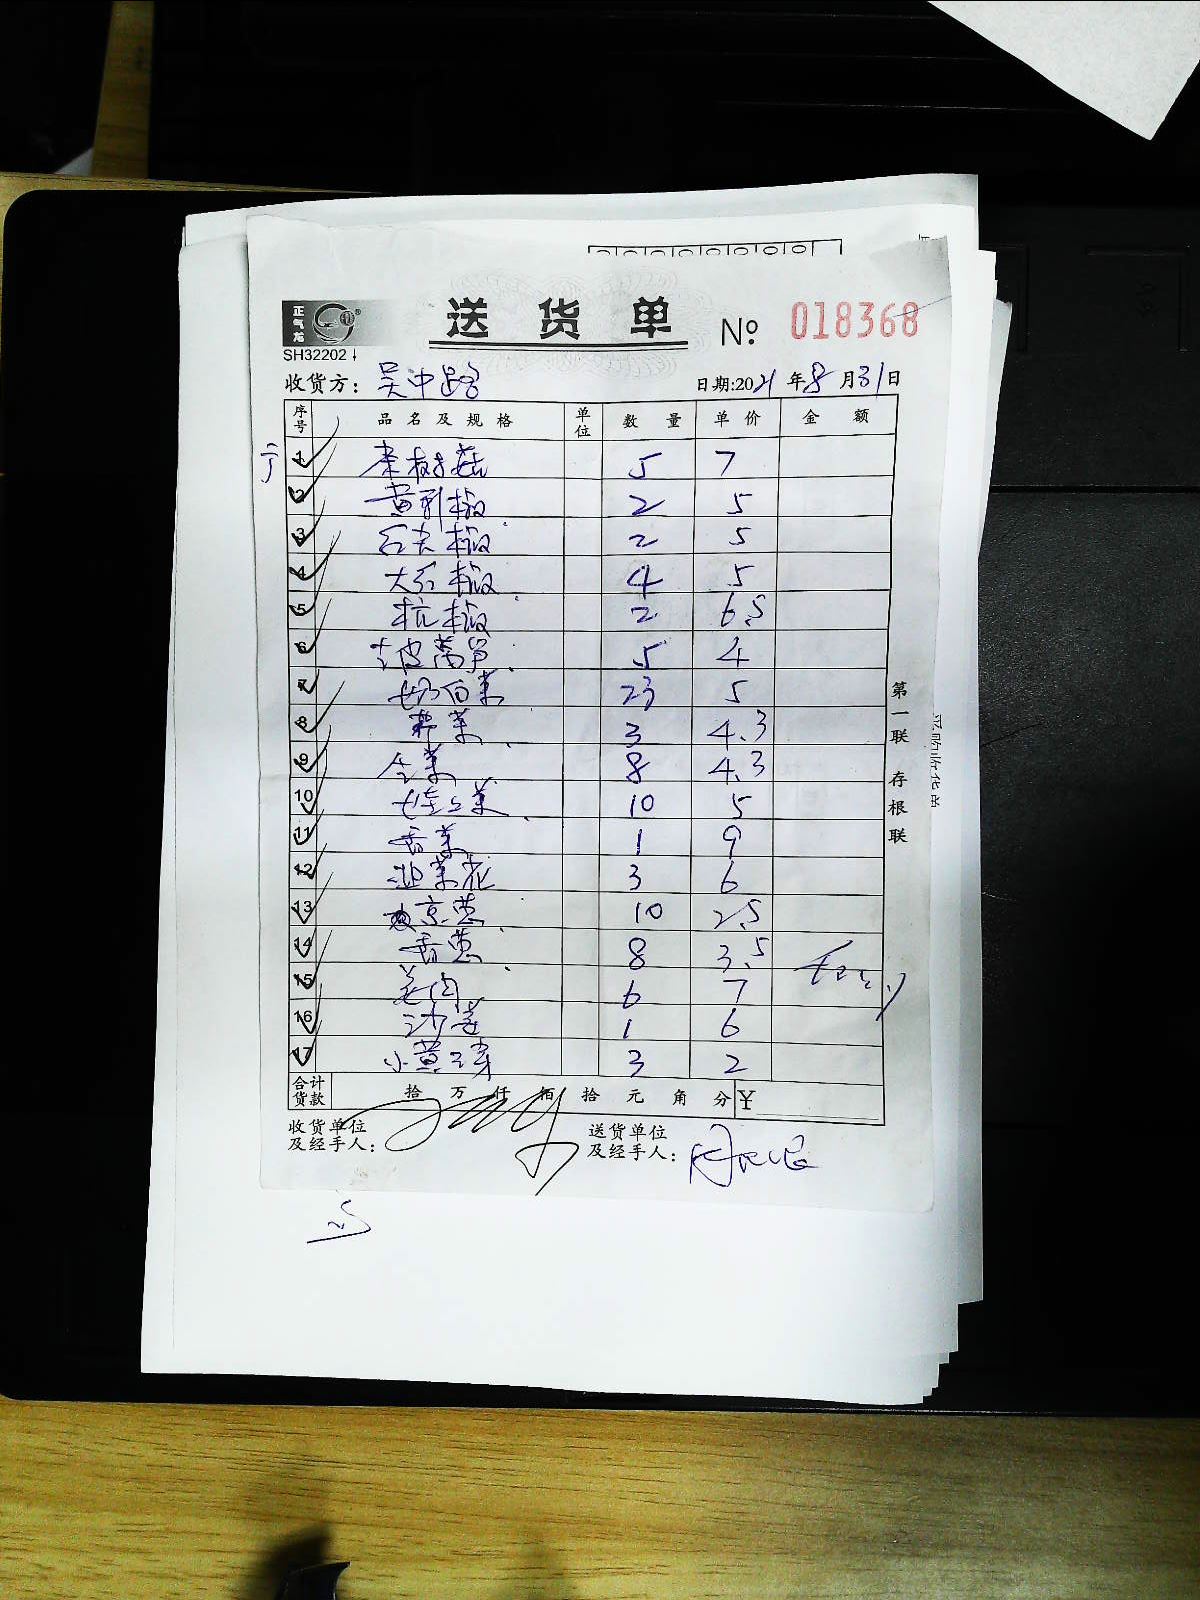 正气龙
送货单 No: 018368
SH32202
收货方: 吴中路 日期:2021年8月31日
序号 品名及规格 单位 数量 单价 金额
1 茶树菇 5 7
2 黄彩椒 2 5
3 红尖椒 2 5
4 大红椒 4 5
5 杭椒 2 6.5
6 去皮莴笋 5 4
7 奶白菜 23 5
8 2 3 4.3
9 生菜 8 4.3
10 娃娃菜 10 5
11 香菜 1 9
12 韭菜花 3 6
13 京葱 10 2.5
14 香葱 8 3.5
15 姜肉 6 7
16 沙姜 1 6
17 小黄 3 2
合计货款 拾 万 仟 佰 拾 元 角 分 ¥
收货单位及经手人:
送货单位及经手人:
第一联 存根联